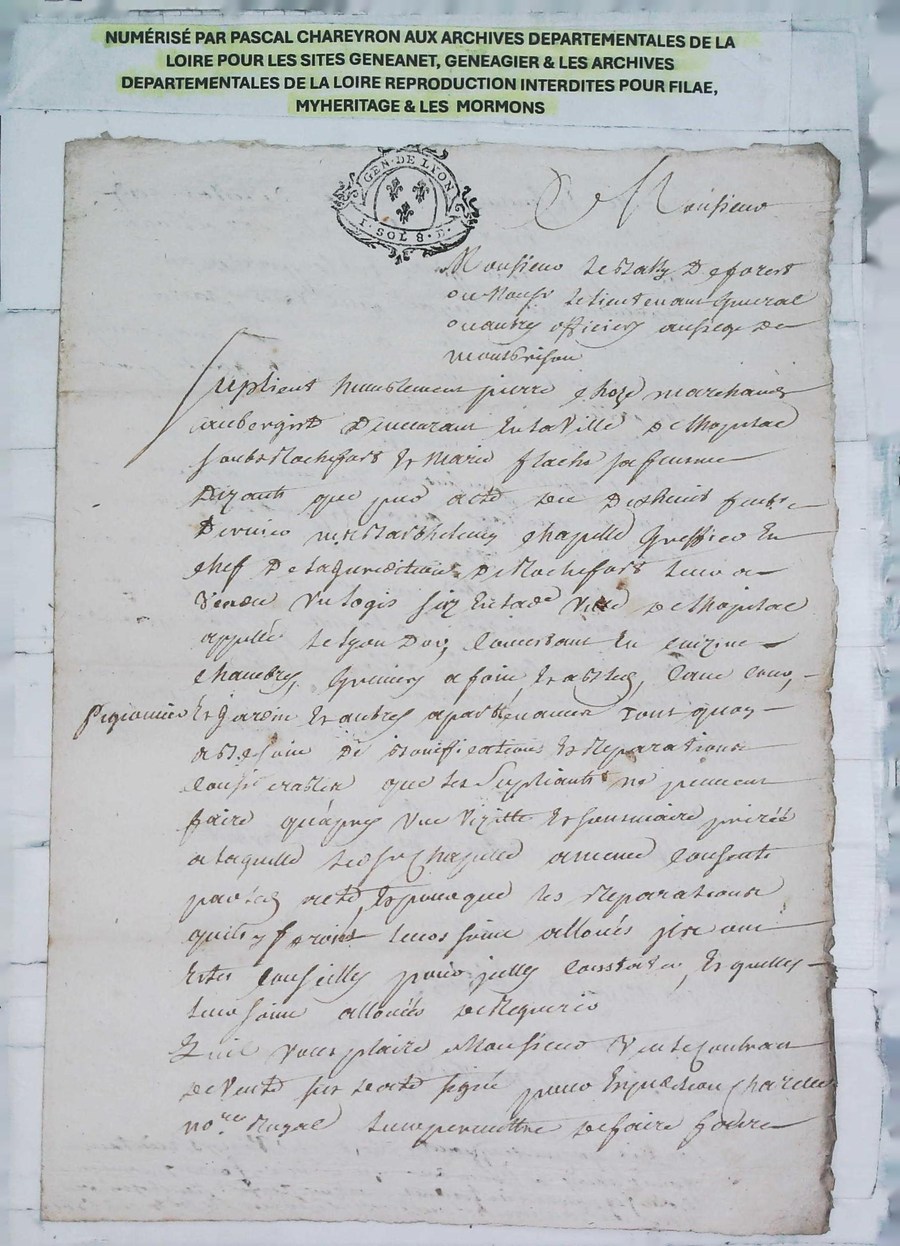 NUMÉRISÉ PAR PASCAL CHAREYRON AUX ARCHIVES DEPARTEMENTALES DE LA
LOIRE POUR LES SITES GENEANET, GENEAGIER & LES ARCHIVES
DEPARTEMENTALES DE LA LOIRE REPRODUCTION INTERDITES POUR FILAE,
MYHERITAGE & LES MORMONS
GEN·DE LYON
I·SOL 8·D·
A Monsieur
Monsieur le Bally De forest
ou Monsr le lieutenant General
ou autres officiers au siege de
montbrison
Suplient humblement pierre marchand
aubergiste Demeurant En la Ville De lhopital
soubs Rochefort Et Marie flache sa femme
Dizants que par acte du Dixhuit
Dernier Barthelemy Chapelle Greffier En
chef De la Jurediction De Rochefort leur a
Vendu Un logis size En lade Ville De lhopital
appellé le lyon Dor, Consistant En cuizine
chambres, Greniers a foin, Estables, Cave Cour,
Pigionnier Et Jardin Et autres apartenances Tout quoy
a Besoin De Bonifications Et Reparations
Considerables que les Supliants ne peuvent
faire quapres Une Vizitte Et sommaire
a laquelle led sr Chapelle a meme Consenti
par led acte, Et pour que les Reparations
quils y feront leur soint alloués
Este Conseillés pour icelles Constater, Et quelles
leur soint alloués de Requerir
Quil Vous plaise Monsieur Vu le Contrat
de Vente sur Datté signé pour Expedition
nore Royal leur permettre De faire